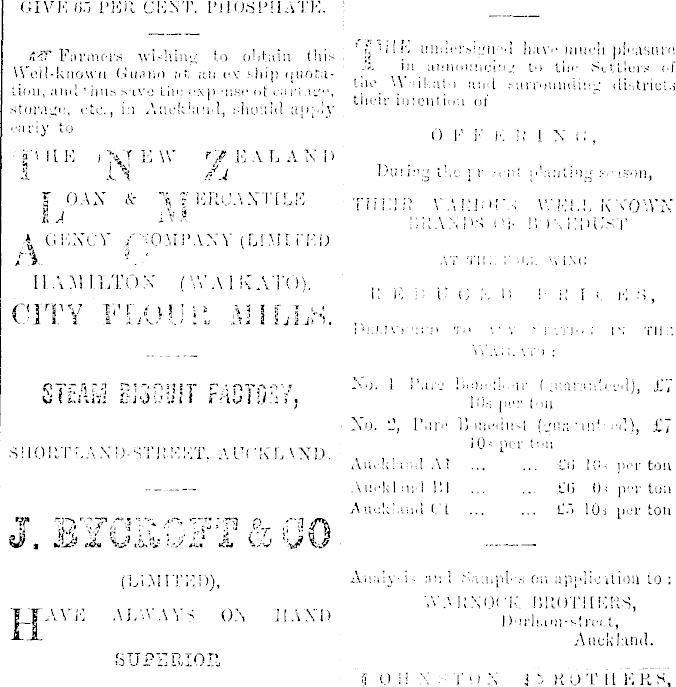 GIVE 65 PER CENT. PHOSPHATE.
Farmers wishing to obtain this
Well-known Guano at an ex ship quota-
tion, and thus save the expense of cartage,
storage, etc., in Auckland, should apply
early to
THE NEW ZEALAND
LOAN & MERCANTILE
AGENCY COMPANY (LIMITED
HAMILTON (WAIKATO).
CITY FLOUR MILLS.
STEAM BISCUIT FACTORY,
SHORTLAND-STREET, AUCKLAND.
J. BYCROFT & CO
(LIMITED),
HAVE ALWAYS ON HAND
SUPERIOR
THE undersigned have much pleasure
in announcing to the Settlers of
the Waikato and surrounding districts
their intention of
OFFERING,
During the present planting season,
THEIR VARIOUS WELL KNOWN
BRANDS OF BONEDUST
AT THE FOLLOWING
REDUCED PRICES,
DELIVERED TO ANY STATION IN THE
WAIKATO:
No. 1 Pure Boneflour (guaranteed), £7
10s per ton
No. 2, Pure Bonedust (guaranteed), £7
10s per ton
Auckland A1 ... ... £6 10s per ton
Auckland B1 ... ... £6 0s per ton
Auckland C1 ... ... £5 10s per ton
Analysis and Samples on application to:
WARNOCK BROTHERS,
Durham-street,
Auckland.
JOHNSTON BROTHERS,